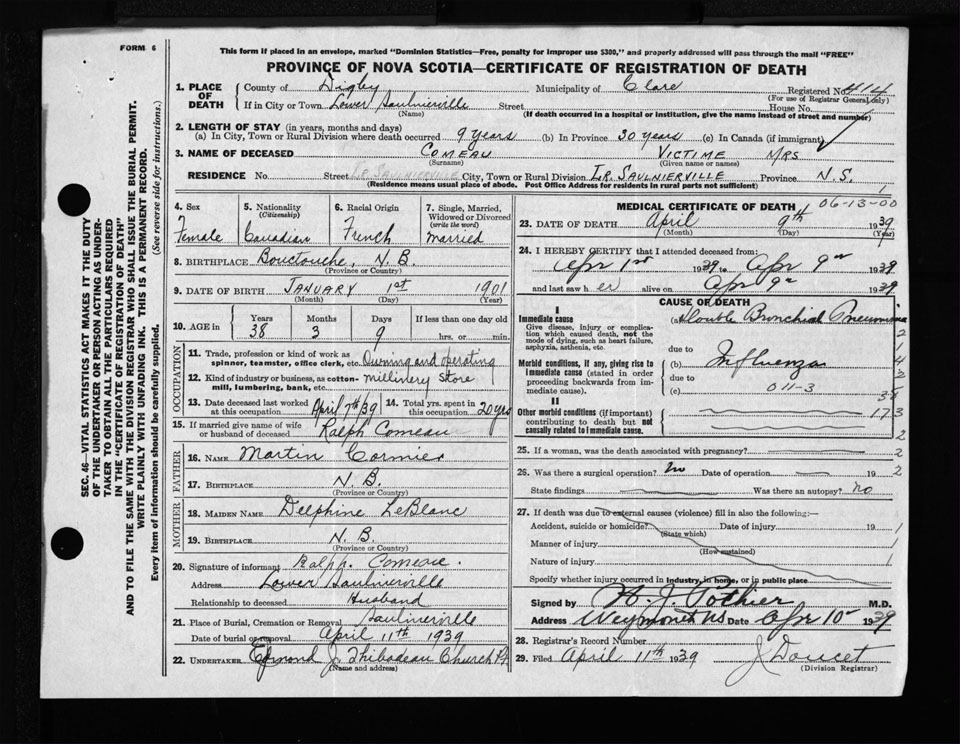 FORM 6
This form if placed in an envelope, marked "Dominion Statistics—Free, penalty for improper use $300," and properly addressed will pass through the mail "FREE"
PROVINCE OF NOVA SCOTIA—CERTIFICATE OF REGISTRATION OF DEATH
SEC. 46—VITAL STATISTICS ACT MAKES IT THE DUTY
OF THE UNDERTAKER OR PERSON ACTING AS UNDER-
TAKER TO OBTAIN ALL THE PARTICULARS REQUIRED
IN THE "CERTIFICATE OF REGISTRATION OF DEATH"
AND TO FILE THE SAME WITH THE DIVISION REGISTRAR WHO SHALL ISSUE THE BURIAL PERMIT.
WRITE PLAINLY WITH UNFADING INK. THIS IS A PERMANENT RECORD.
Every item of information should be carefully supplied. (See reverse side for instructions.)
1. PLACE OF DEATH County of Digby Municipality of Clare Registered No. 414
(For use of Registrar General only)
If in City or Town Lower Saulnierville Street House No.
(Name) (If death occurred in a hospital or institution, give the name instead of street and number)
2. LENGTH OF STAY (in years, months and days)
(a) In City, Town or Rural Division where death occurred 9 years (b) In Province 30 years (c) In Canada (if immigrant)
3. NAME OF DECEASED COMEAU VICTIME MRS
(Surname) (Given name or names)
RESIDENCE No. Street LR. SAULNIERVILLE City, Town or Rural Division LR. SAULNIERVILLE Province N.S.
(Residence means usual place of abode. Post Office Address for residents in rural parts not sufficient) 1
4. Sex 5. Nationality (Citizenship) 6. Racial Origin 7. Single, Married, Widowed or Divorced (write the word)
Female Canadian French Married
8. BIRTHPLACE Bouctouche, N.B.
(Province or Country)
9. DATE OF BIRTH JANUARY 1st 1901
(Month) (Day) (Year)
10. AGE in Years Months Days If less than one day old
38 3 9 hrs. or min.
OCCUPATION
11. Trade, profession or kind of work as spinner, teamster, office clerk, etc. Owning and operating
12. Kind of industry or business, as cotton-mill, lumbering, bank, etc. Millinery Store
13. Date deceased last worked at this occupation April 7th/39 14. Total yrs. spent in this occupation 20 yrs
15. If married give name of wife or husband of deceased Ralph Comeau
FATHER
16. NAME Martin Cormier
17. BIRTHPLACE N.B.
(Province or Country)
MOTHER
18. MAIDEN NAME Delphine LeBlanc
19. BIRTHPLACE N.B.
(Province or Country)
20. Signature of informant Ralph. Comeau.
Address Lower Saulnierville
Relationship to deceased Husband
21. Place of Burial, Cremation or Removal Saulnierville
Date of burial or removal April 11th 1939
22. UNDERTAKER Edmond J. Thibodeau Church Pt
(Name and address)
MEDICAL CERTIFICATE OF DEATH 06-13-00
23. DATE OF DEATH April 9th 1939
(Month) (Day) (Year)
24. I HEREBY CERTIFY that I attended deceased from:
Apr 1st 1939 to Apr 9th 1939
and last saw her alive on Apr 9th 1939
CAUSE OF DEATH
I
Immediate cause (a) Double Bronchial Pneumonia
Give disease, injury or complication which caused death, not the mode of dying, such as heart failure, asphyxia, asthenia, etc.
due to
Morbid conditions, if any, giving rise to immediate cause (stated in order proceeding backwards from immediate cause). (b) Influenza
due to
(c) 011-3
II
Other morbid conditions (if important) contributing to death but not causally related to immediate cause.
173
25. If a woman, was the death associated with pregnancy?
26. Was there a surgical operation? No Date of operation 19 2
State findings Was there an autopsy? no
27. If death was due to external causes (violence) fill in also the following:—
Accident, suicide or homicide? Date of injury 19 1
(State which)
Manner of injury 1
(How sustained)
Nature of injury 1
Specify whether injury occurred in industry, in home, or in public place
Signed by H. J. Pothier M.D.
Address Weymouth NS Date Apr 10 1939
28. Registrar's Record Number
29. Filed April 11th 1939 J Doucet
(Division Registrar)